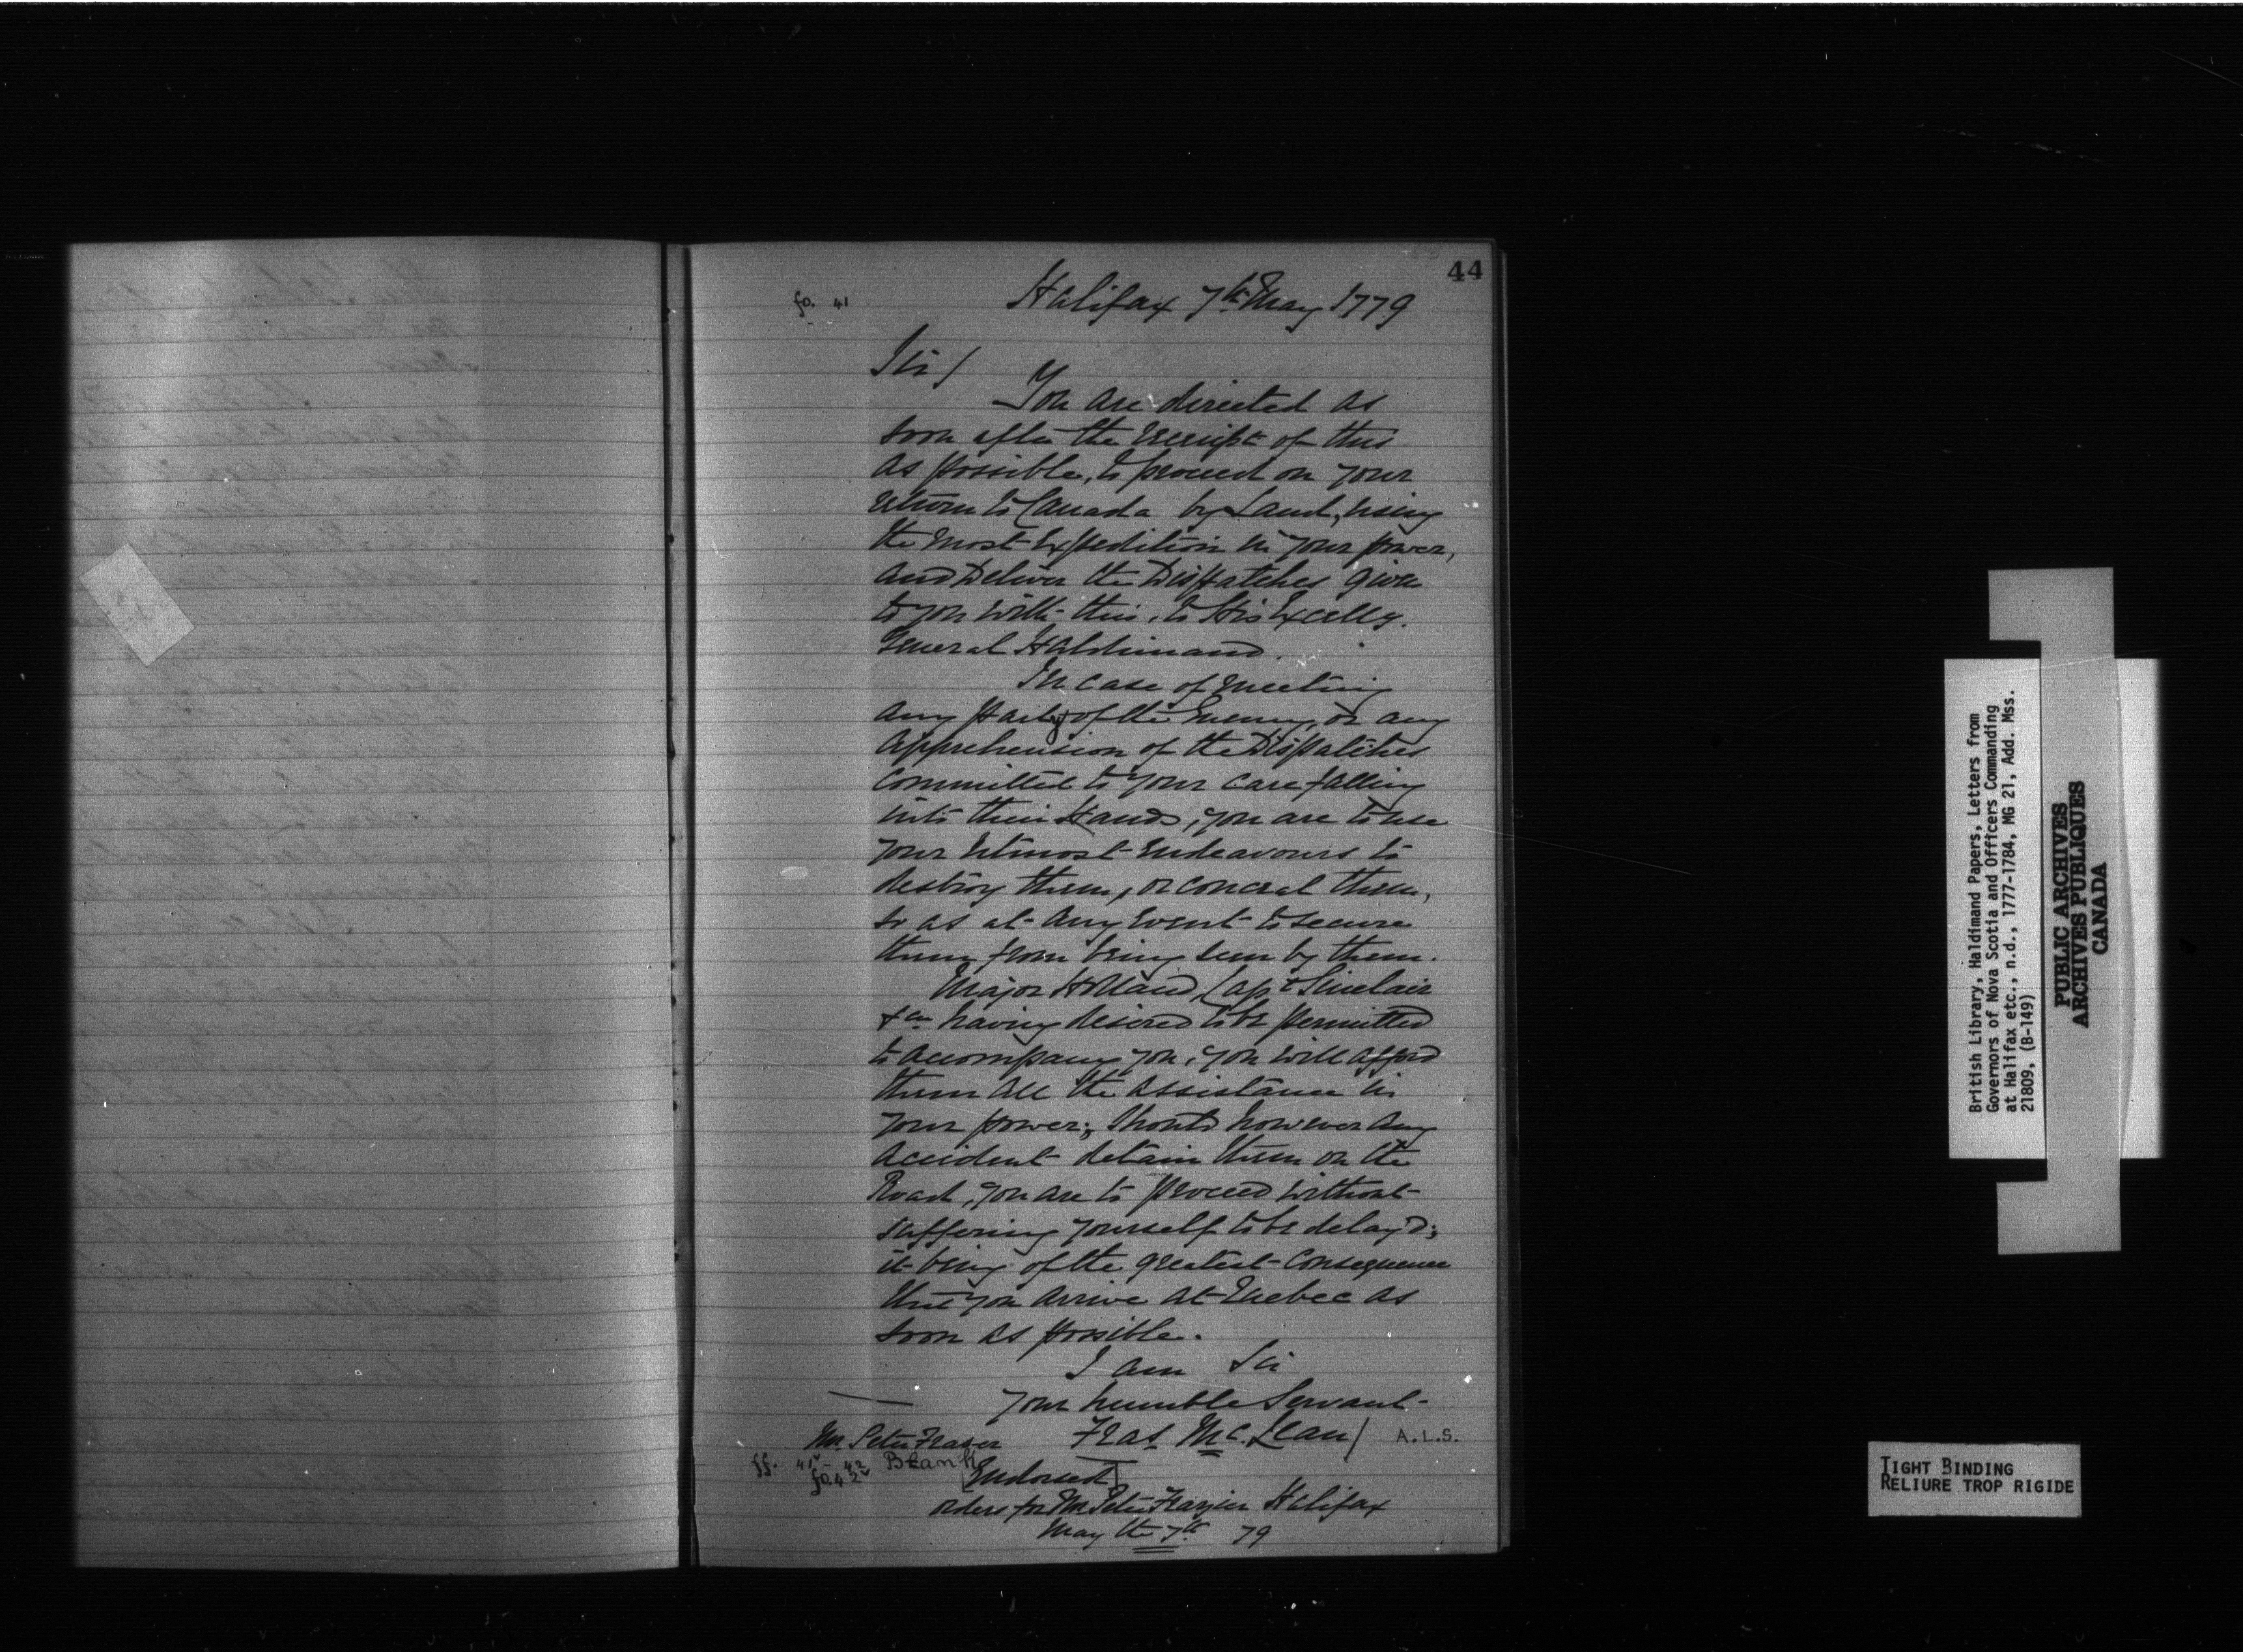 44
fo. 41
Halifax 7th May 1779
Sir/
You are directed as
soon after the receipt of this
as possible, to proceed on your
return to Canada by Land, using
the most Expedition in your power,
and Deliver the Dispatches given
to you with this, to His Excelly.
General Haldimand.
In case of meeting
any Party of the Enemy, or any
apprehension of the Dispatches
committed to your care falling
into their Hands, you are to use
your Utmost Endeavours to
destroy them, or conceal them,
so as at any Event to secure
them from being seen by them.
Major Holland, Capt Sinclair
&ca having desired to be permitted
to accompany you, you will afford
them all the assistance in
your power; should however any
accident detain them on the
Road, you are to proceed without
suffering yourself to be delay'd;
it being of the greatest Consequence
that you arrive at Quebec as
soon as possible.
I am Sir
your humble Servant
Fras Mc.Lean/ A.L.S.
Mr. Peter Fraser
ff. 41v - 42 Blank
fo. 42v [Endorsed]
orders for Mr Peter Frazier Halifax
May the 7th 79
British Library, Haldimand Papers, Letters from
Governors of Nova Scotia and Officers Commanding
at Halifax etc., n.d., 1777-1784, MG 21, Add. Mss.
21809, (B-149)
PUBLIC ARCHIVES
ARCHIVES PUBLIQUES
CANADA
TIGHT BINDING
RELIURE TROP RIGIDE